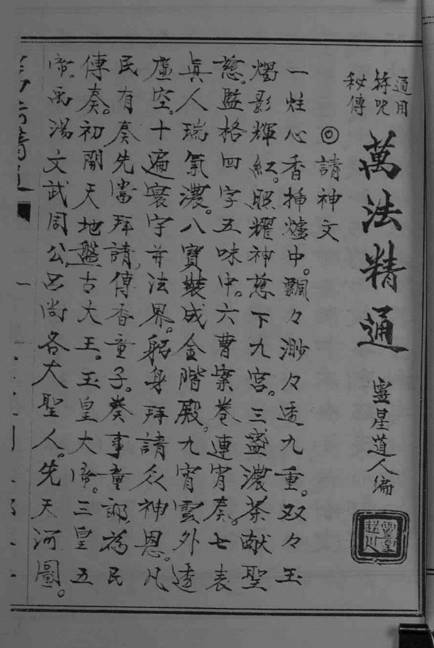 通用
符咒
秘傳
萬法精通
靈星道人編
◎請神文
一炷心香插爐中。飄々渺々透九重。双々玉
燭影輝紅。照耀神慈下九宮。三盞濃茶献聖
慈。監格四字五味中。六曹案卷連宵奏。七表
真人瑞氣濃。八寶裝成金階殿。九宵雲外達
虛空。十遍寰宇并法界。躬身拜請众神恩。凡
民有奏先當拜請。傳香童子。奏事童郎。為民
傳奏。初開天地盤古大王。玉皇大帝。三皇五
帝。禹湯文武周公呂尚各大聖人。先天河圖。